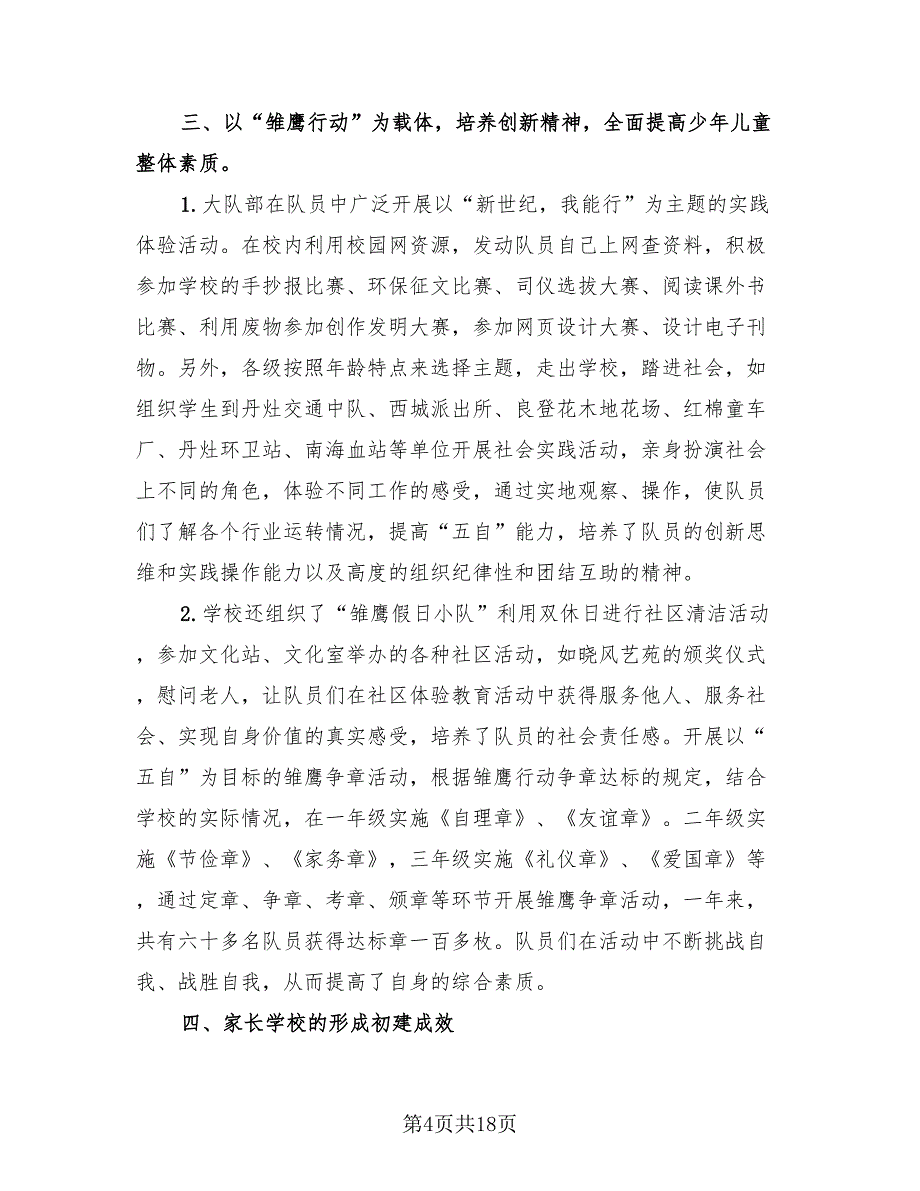 三、以“雏鹰行动”为载体，培养创新精神，全面提高少年儿童
整体素质。
1. 大队部在队员中广泛开展以“新世纪，我能行”为主题的实践
体验活动。在校内利用校园网资源，发动队员自己上网查资料，积极
参加学校的手抄报比赛、环保征文比赛、司仪选拔大赛、阅读课外书
比赛、利用废物参加创作发明大赛，参加网页设计大赛、设计电子刊
物。另外，各级按照年龄特点来选择主题，走出学校，踏进社会，如
组织学生到丹灶交通中队、西城派出所、良登花木地花场、红棉童车
厂、丹灶环卫站、南海血站等单位开展社会实践活动，亲身扮演社会
上不同的角色，体验不同工作的感受，通过实地观察、操作，使队员
们了解各个行业运转情况，提高“五自”能力，培养了队员的创新思
维和实践操作能力以及高度的组织纪律性和团结互助的精神。
2. 学校还组织了“雏鹰假日小队”利用双休日进行社区清洁活动
，参加文化站、文化室举办的各种社区活动，如晓风艺苑的颁奖仪式
，慰问老人，让队员们在社区体验教育活动中获得服务他人、服务社
会、实现自身价值的真实感受，培养了队员的社会责任感。开展以“
五自”为目标的雏鹰争章活动，根据雏鹰行动争章达标的规定，结合
学校的实际情况，在一年级实施《自理章》、《友谊章》。二年级实
施《节俭章》、《家务章》，三年级实施《礼仪章》、《爱国章》等
，通过定章、争章、考章、颁章等环节开展雏鹰争章活动，一年来，
共有六十多名队员获得达标章一百多枚。队员们在活动中不断挑战自
我、战胜自我，从而提高了自身的综合素质。
四、家长学校的形成初建成效
第4页共18页